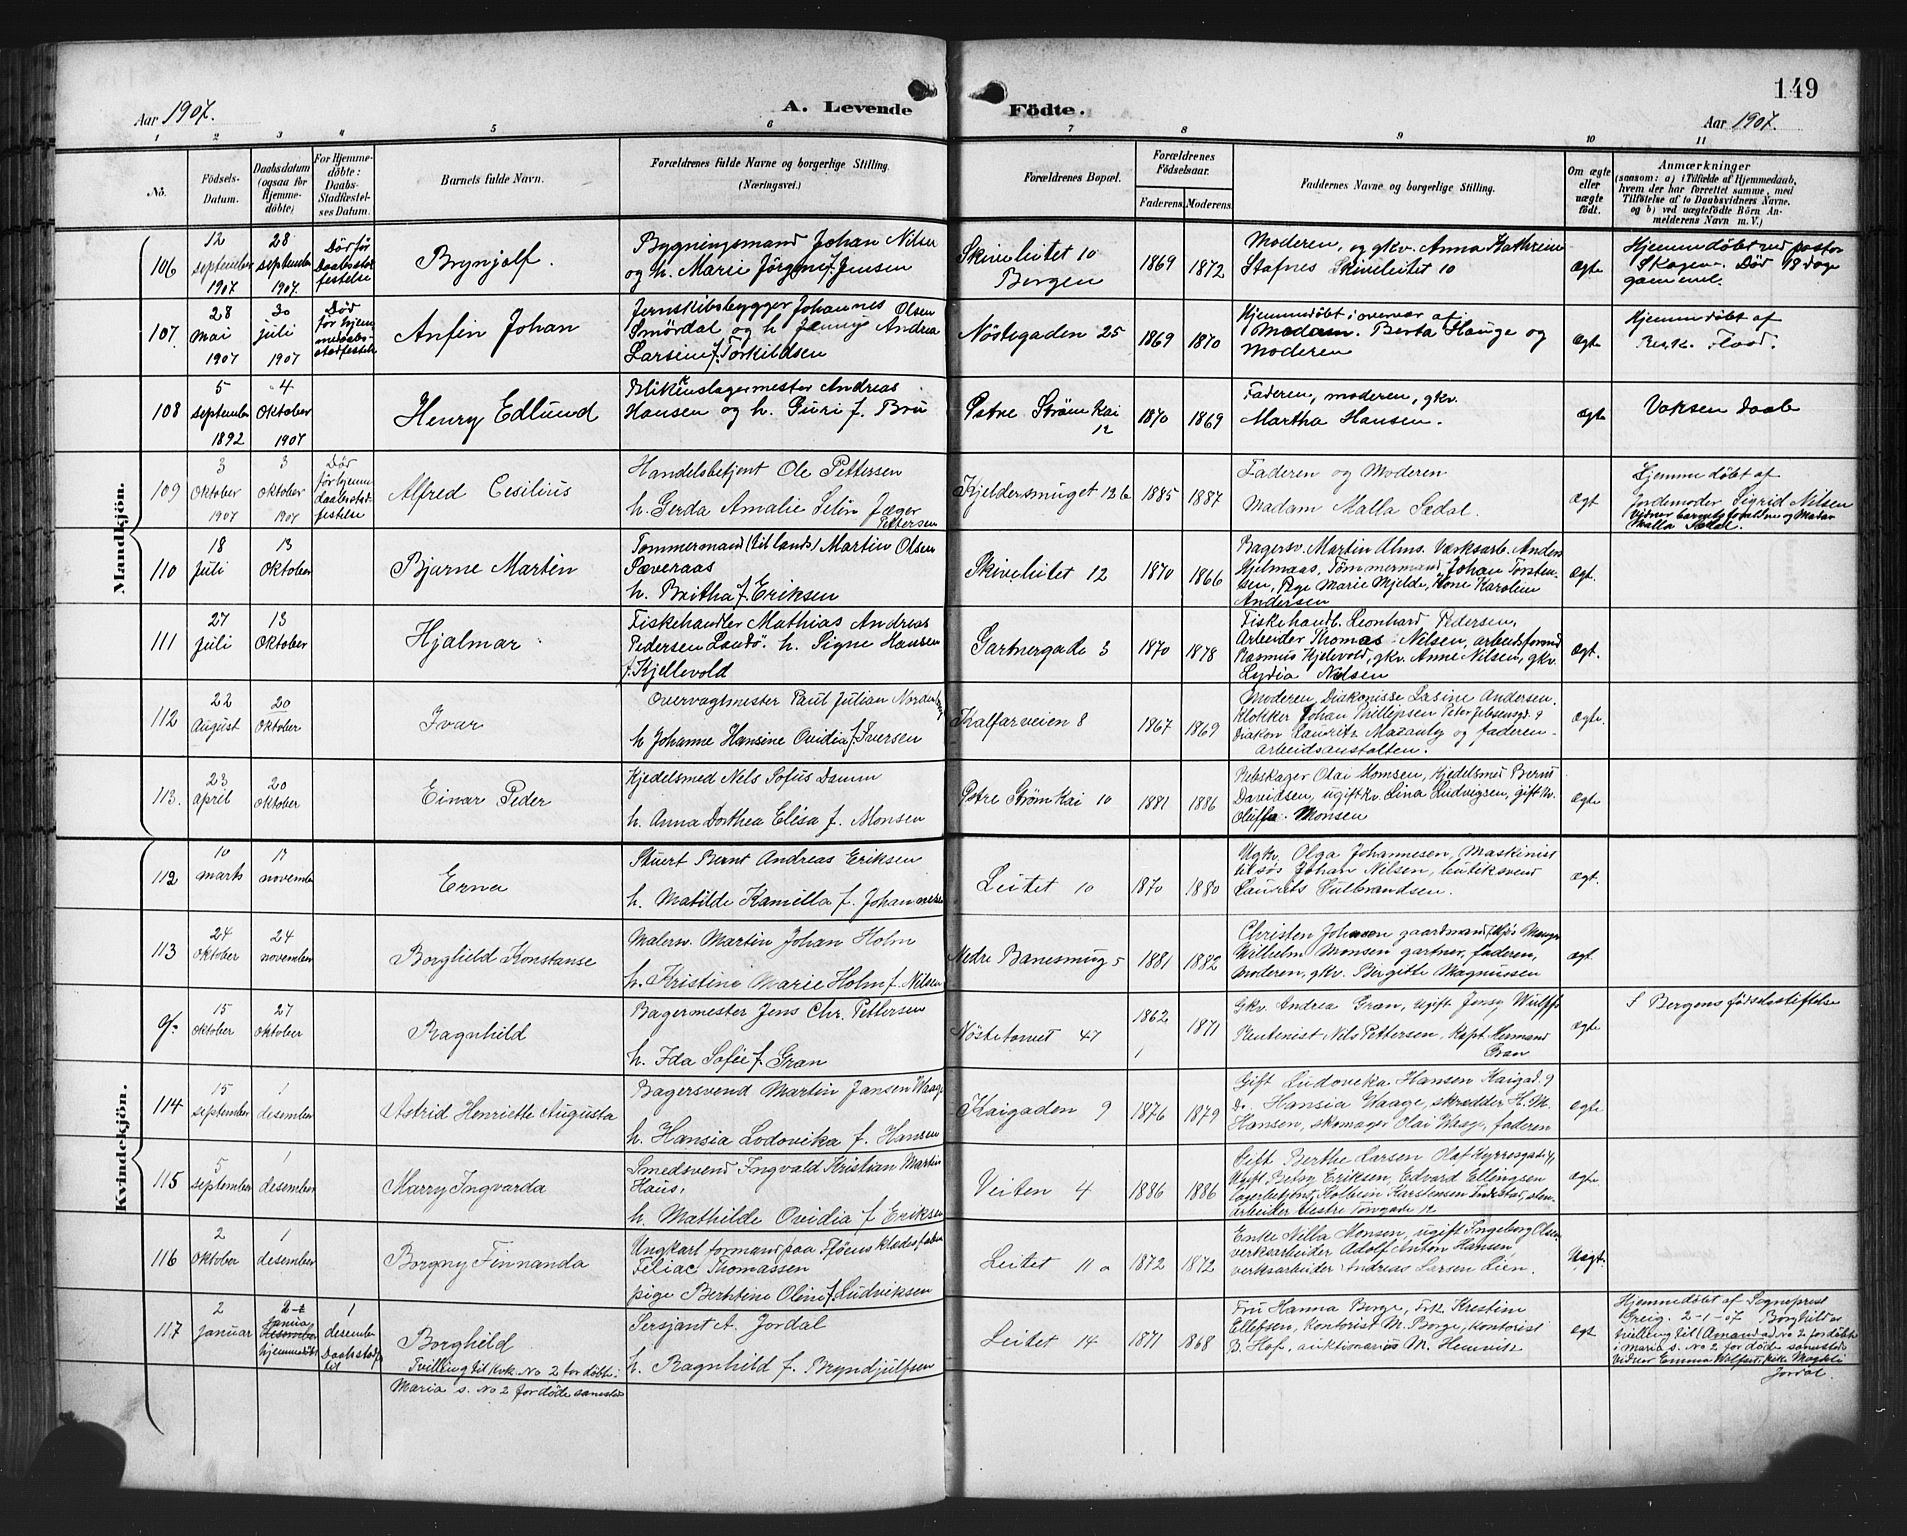 149
Aar 1907. A. Levende Födte. Aar 1907.
1 2 3 4 5 6 7 8 9 10 11
No. Födsels-Datum. Daabsdatum (ogsaa for Hjemme-döbte) For Hjemme-döbte: Daabs-Stadfæstel-ses Datum. Barnets fulde Navn. Forældrenes fulde Navne og borgerlige Stilling. (Næringsvei.) Forældrenes Bopæl. Forældrenes Födselsaar. Faderens. Moderens. Faddernes Navne og borgerlige Stilling. Om ægte eller uægte født. Anmærkninger (saasom: a) i Tilfælde af Hjemmedaab, hvem der har forrettet samme, med Tilföielse af to Daabsvidners Navne. og b) ved uægtefödte Börn An-melderens Navn m. V.)
Mandkjön.
106 12 september 1907 28 september 1907. Död før Daabsstad festelse Brynjolf. Bygningsmand Johan Nilsen
og h. Marie Jörgine f. Jensen Skiveleitet 10
Bergen 1869 1872 Moderen, og gkv. Anna Kathrine
Stafnes Skiveleitet 10 Ægte Hjemmedøbt ved pastor
Skagen. Död 18 dage
gammel.
107. 28 Mai 1907 30 juli 1907 Död før hjem medaabs-stadfestelse Anfin Johan Jernskibsbygger Johannes Olsen
Smørdal og h. Jennys Andrea
Larsine f. Torkildsen Nöstegaden 25 1869 1870 Hjemmedøbt i overvær af
Madam. Berta Hauge og
Moderen Ægte Hjemmedøbt af
Resk. Flood.
108 5 september 1892 4 Oktober 1907 Henry Edlund Blikkenslagermester Andreas
Hansen og h. Guri f. Bru Østre Strøm Kai
12 1870 1869 Faderen, moderen, gkv.
Martha Hansen. Ægte Voksen daab
109 3 Oktober 1907 3 Oktober 1907 Död før hjemme daabsstad festelse Alfred Cesilius Handelsbetjent Ole Pettersen
h. Gerda Amalie Selin Jæger
Pettersen Kjeldersmuget 12 b 1885 1887 Faderen og Moderen
Madam Malla Sædal. Ægt Hjemmedøbt af
Jordemoder Sigrid Nilsen
Vidner barnets foreldre og Madam
Malla Sædal.
110 18 Juli 13 Oktober Bjarne Martin Tømmermand (til lands) Martin Olsen
Sæveraas
h. Britha f. Eriksen Skiveleitet 12 1870 1866 Bagersv. Martin Alms. Værksarb. Anders
Hjelmaas, Tømmermand Johan Torsten-
sen, Pige Marie Mjelde, Kone Karoline
Andersen Ægt.
111 27 Juli 13 Oktober Hjalmar Fiskehandler Mathias Andreas
Pedersen Landö. h. Signe Hansen
f. Kjellevold Gartnergade 3 1870 1878 Fiskehandl. Leonhard Pedersen,
Arbeider Thomas Nilsen, arbeidsformd
Rasmus Kjelevold, gkv. Anne Nilsen, gkv.
Lydia Nilsen Ægt.
112 22 August 20 Oktober Ivar Overvagtmester Paul Julian Nordenborg
h Johanne Hansine Ovidia f. Iversen Kalfarveien 8 1867 1869 Moderen, Diakonisse Lasine Andersen.
Klokker Johan Phillipsen Peter Jebsensgd. 9
Diakon Lauritz Mazanly og faderen -
arbeidsanstalten. Ægte.
113. 23 April 20 Oktober Einar Peder Kjedelsmed Nels Sofus Damm
h. Anna Dorthea Elisa f. Monsen Østre Strøm Kai 10 1881 1886 Rebslager Olai Monsen, Kjedelsmed Berius
Davidsen, ugift kv. Lina Ludvigsen, gift kv.
Oluffa Monsen Ægte
Kvindekjön.
112 10 marts 17 november Erna Stuert Bernt Andreas Eriksen
h. Matilde Kamilla f. Johannesen Leitet 10 1870 1880 Ugkv. Olga Johannesen, Maskinist
til søs Johan Nilsen, butiksvend
Laurits Gulbrandsen. Ægt.
113 24 Oktober 24 november Borghild Konstanse Malersv. Martin Johan Holm
h. Kristine Marie Holm f. Nilsen Nedre Banesmug 5 1881 1882 Christen Johnsen gaardmand,
Wilhelm Monsen gartner, faderen,
moderen, gkv. Birgitte Magnussen Ægt.
15 Oktober 27 Oktober Ragnhild Bagermester Jens Chr. Pettersen
h. Ida Sofie f. Gran Nöstetorvet 47 1862 1871 Gkv. Andrea Gran, ugift Jensy Wulff
Rentenist Nils Pettersen, Kapt. Hermand
Gran Ægte I Bergens fødselsstiftelse
114 15 september 1 desember Astrid Henriette Augusta Bagersvend Martin Jansen Waage
h. Hansia Lodovika f. Hansen Kaigaden 9 1876 1879 Gift Ludovika Hansen Kaigad. 9
Do. Hansia Waage, skrædder H. M.
Hansen, skomager Olai Waage, faderen Ægte
115 5 september 1 desember Marry Ingvarda Smedsvend Ingvald Kristian Martin
Haus,
h. Mathilde Ovidia f Eriksen Veiten 4 1886 1886 Gift Berthe Larsen Olaf Kyrresgate 4,
Ugift Betsy Eriksen, Edvard Ellingsen
Lagerbetjent, Kolbein Karstensen Indestad, sten-
arbeider Vestre Torvgade 12 Ægte.
116 2 Oktober 1 desember Borgny Finnanda Ungkarl formand paa Fjøsens klædesfabrik
Feliac Thomassen
pige Berntine Oline f. Ludviksen Leitet 11 a 1872 1872 Enke Nilla Monsen, ugift Ingeborg Olsen
verksarbeider Adolf Anton Hansen
verksarbeider Andreas Larsen Lien. Uægt.
117 2 Januar 2-1 Januar Desember hjemmedøbt 1 desember Daabstadf. Borghild
Tvilling til Kvk. No 2 fordöbte i
Maria s. No 2 for döde samsteds Sersjant A. Jordal
h. Ragnhild f. Bryndjulfsen Leitet 14 1871 1868 Fru Hanna Borge, Frk. Kristine
Ellefsen, Kontorist M. Borge, Kontorist
B. Hof, auktionarius M. Hemvik Ægt Hjemmedøbt af Sogneprest
Breig. 2-1-07 Borghild er
tvilling til (Amanda) No 2 for döbte
i Maria s. No 2 for döde samsteds
Vidner Emma Wolf Magteli
Jordal.